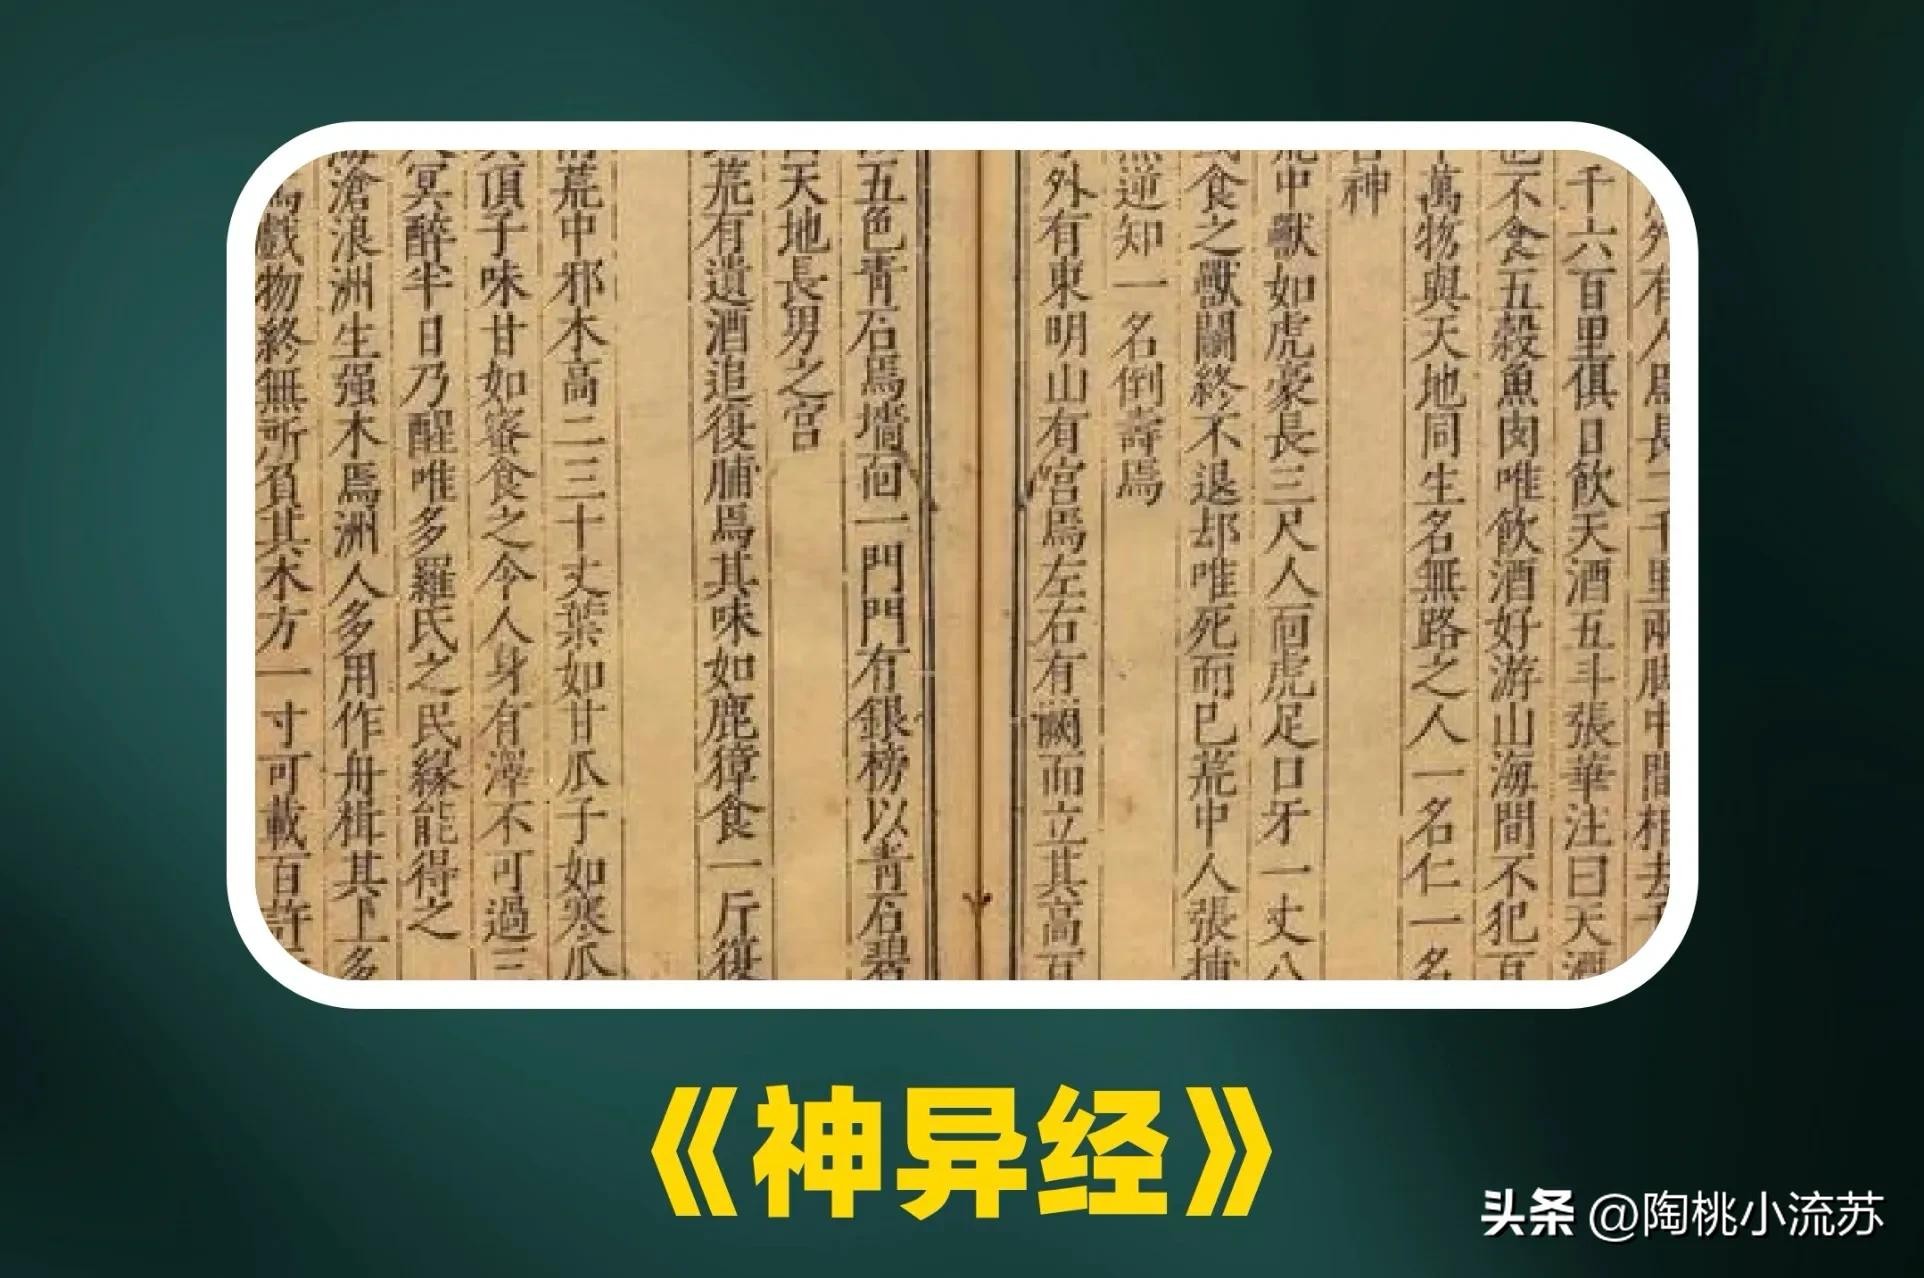 外有人焉長二千里兩脚中間相去千
千六百里俱日飲天酒五斗張華注曰天酒
也不食五穀魚肉唯飲酒好游山海間不犯百
萬物與天地同生名無路之人一名仁一名
神
荒中獸如虎豪長三尺人面虎足口牙一丈八
食之獸鬭終不退却唯死而已荒中人張捕
逆知一名倒壽焉
外有東明山有宮焉左右有闕而立其高百
五色青石焉墻面一門門有銀榜以青石碧
天地長男之宮
荒有遺酒追復脯焉其味如鹿獐食一斤復
荒中邪木高二三十丈葉如甘瓜子如寒瓜
頂子味甘如蜜食之令人身有澤不可過三
冥醉半日乃醒唯多羅氏之民緣能得之
海滄浪洲生强木焉洲人多用作舟楫其上多
爲戲物終無所負其木方一寸可載百許
《神异经》
头条 @陶桃小流苏